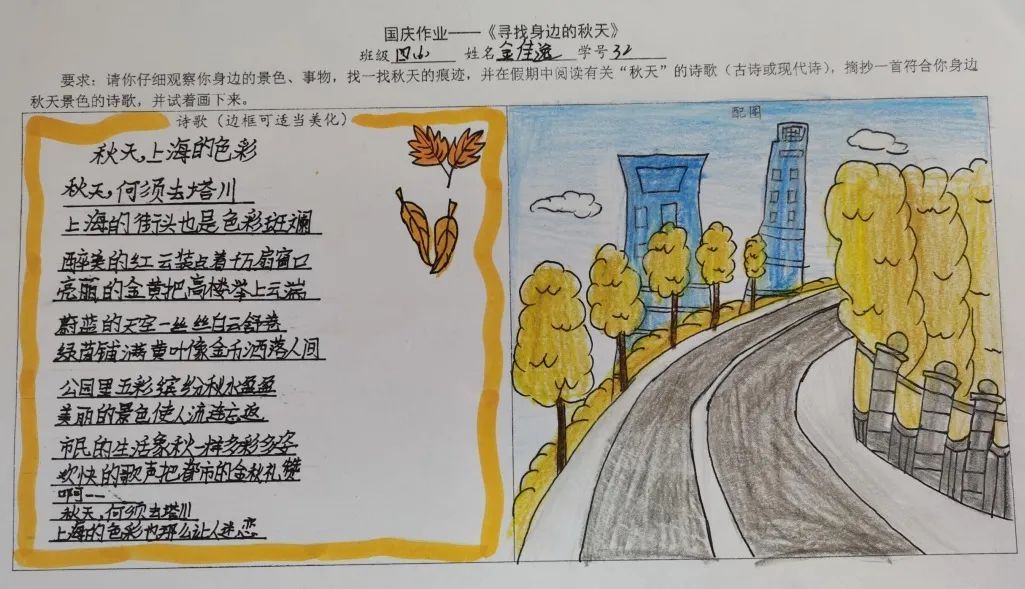 国庆作业——《寻找身边的秋天》
班级 四山 姓名 金佳逸 学号 32
要求：请你仔细观察你身边的景色、事物，找一找秋天的痕迹，并在假期中阅读有关“秋天”的诗歌（古诗或现代诗），摘抄一首符合你身边
秋天景色的诗歌，并试着画下来。
诗歌（边框可适当美化）
秋天，上海的色彩
秋天，何须去塔川
上海的街头也是色彩斑斓
醉美的红云装点着十万扇窗口
亮丽的金黄把高楼举上云端
蔚蓝的天空一丝丝白云舒卷
绿茵铺满黄叶像金币洒落人间
公园里五彩缤纷秋水盈盈
美丽的景色使人流连忘返
市民的生活象秋一样多彩多姿
欢快的歌声把都市的金秋礼赞
啊——
秋天，何须去塔川
上海的色彩也那么让人迷恋
配图